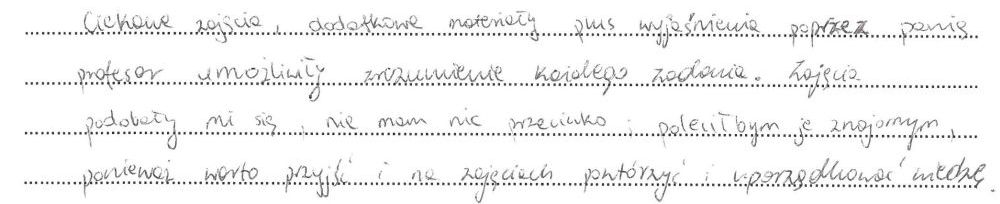 Ciekawe zajęcia, dodatkowe materiały plus wyjaśnienia poprzez panią
profesor umożliwiły zrozumienie każdego zadania. Zajęcia
podobały mi się, nie mam nic przeciwko i poleciłbym je znajomym,
ponieważ warto przyjść i na zajęciach powtórzyć i uporządkować wiedzę.